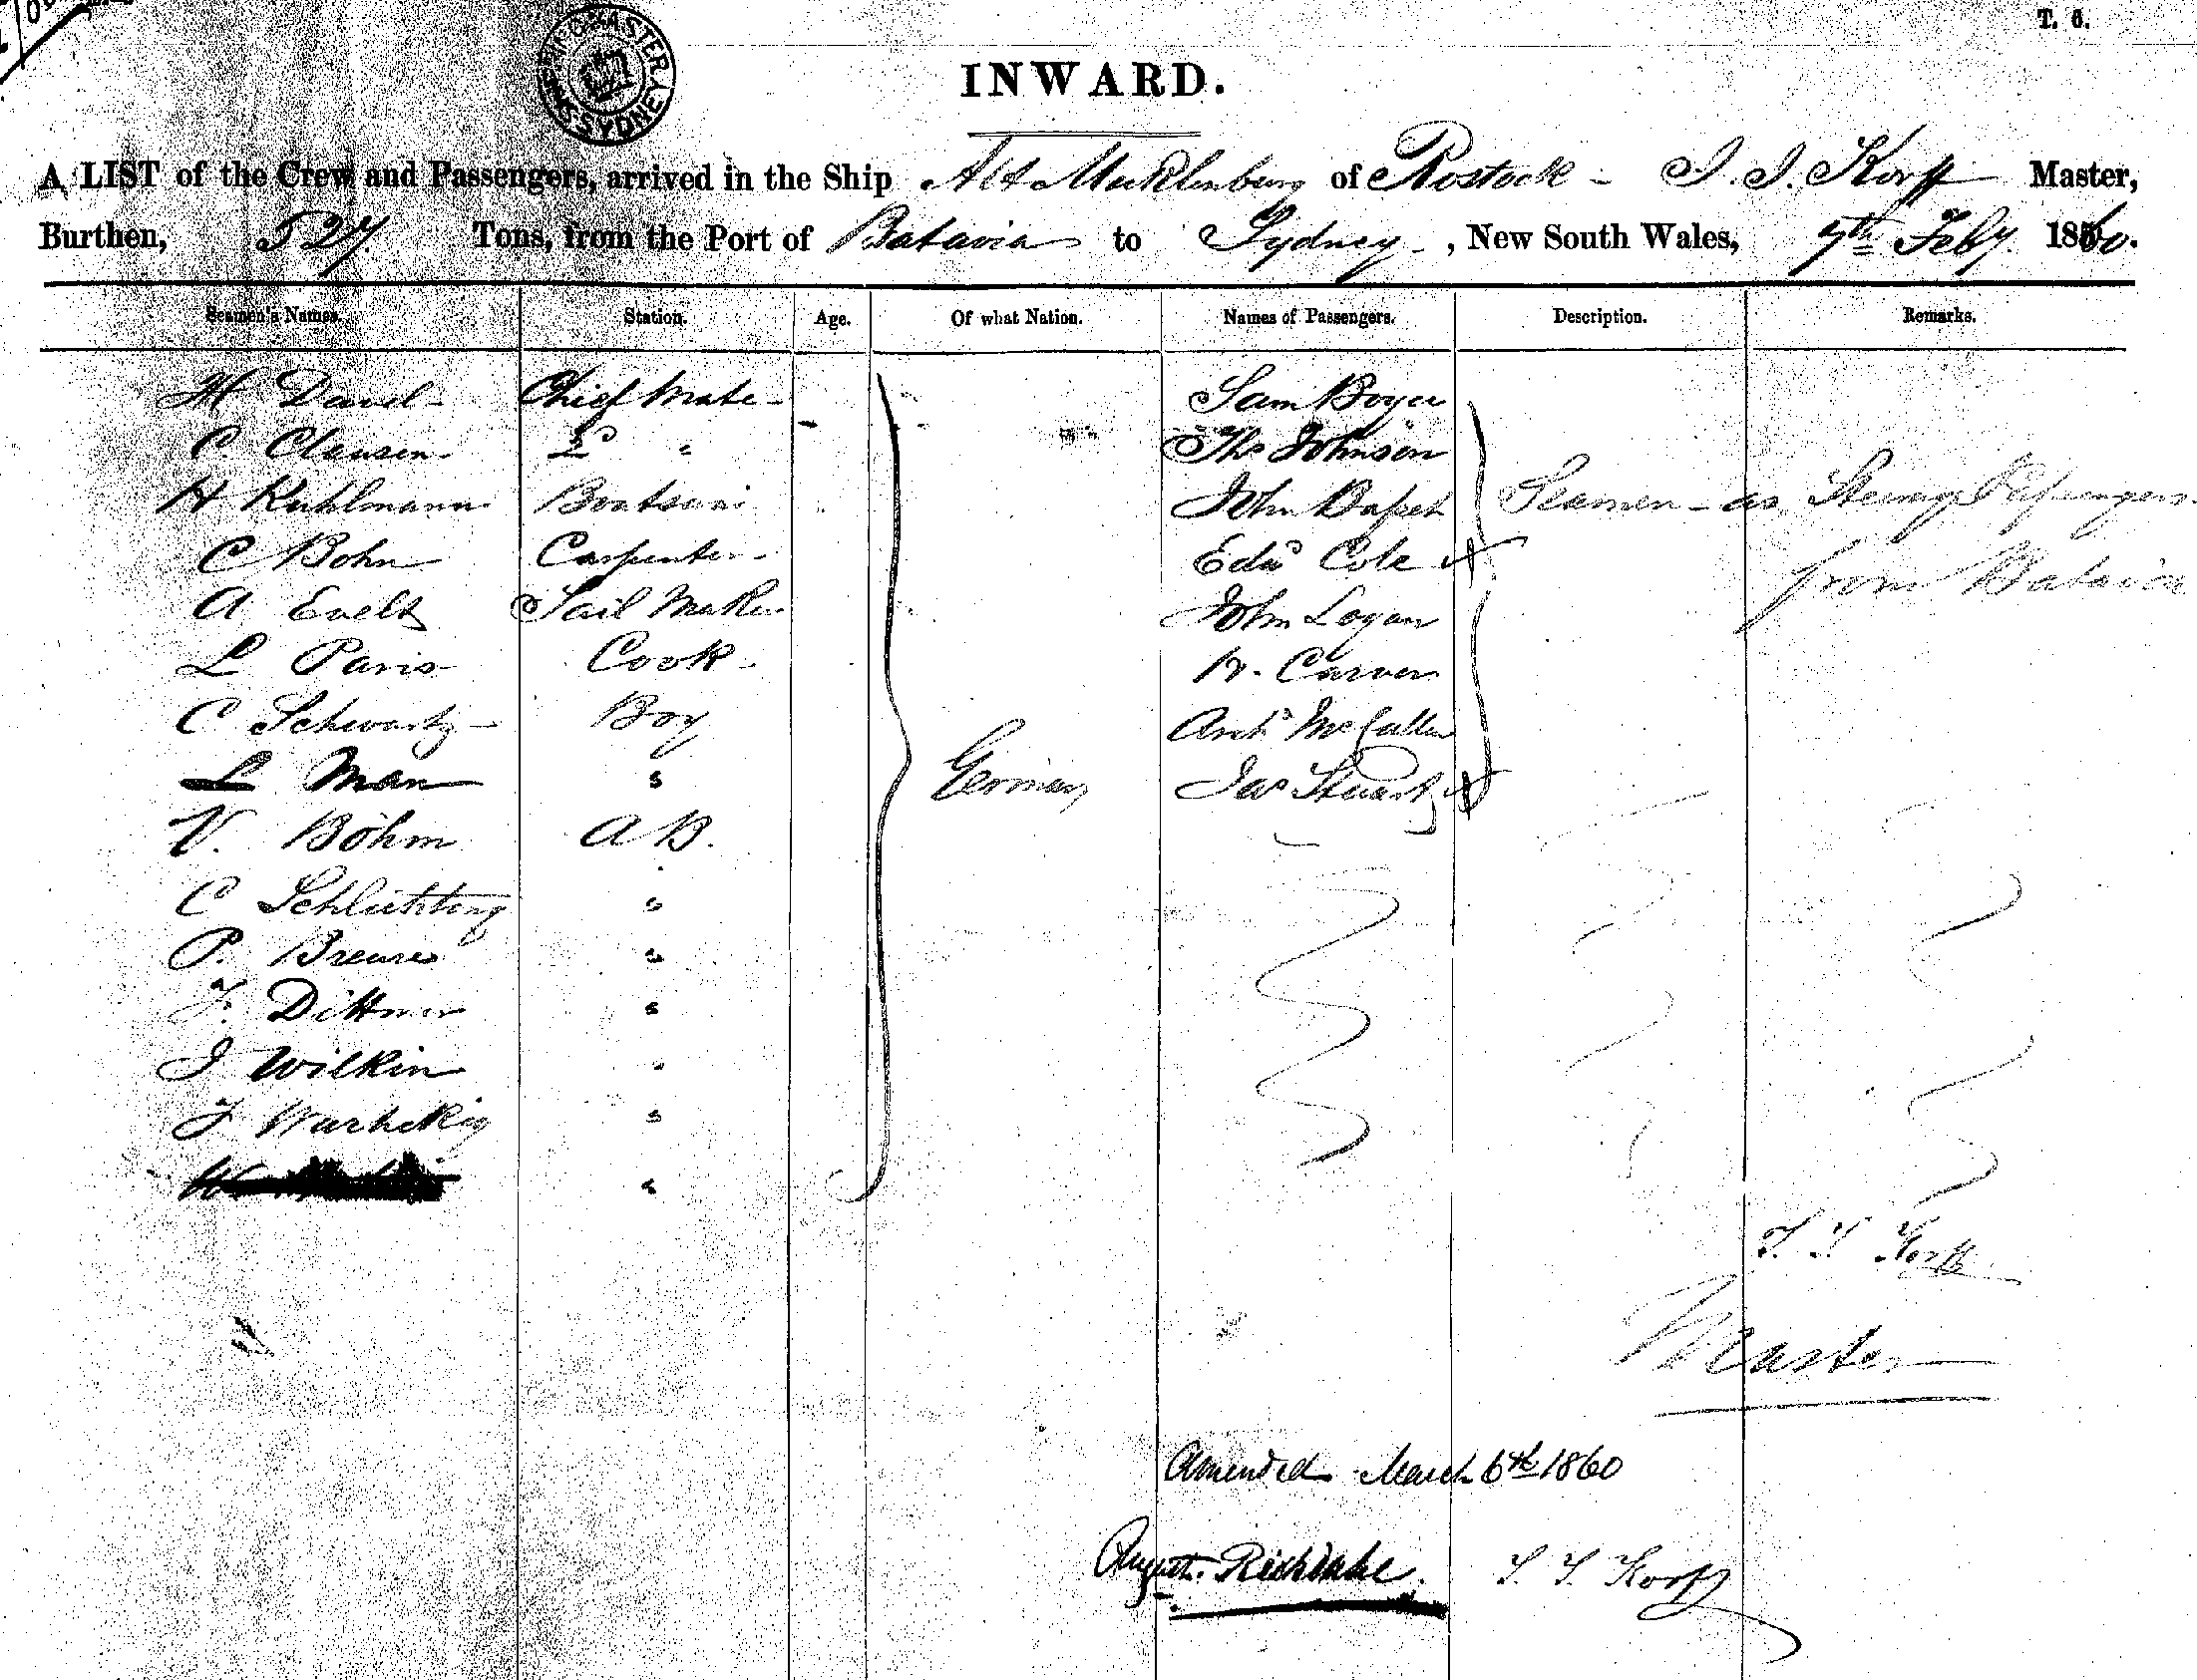 T. 6.
SHIPPING MASTER SYDNEY
INWARD.
A LIST of the Crew and Passengers, arrived in the Ship Alt Mecklenburg of Rostock - J. J. Korff Master,
Burthen, 527 Tons, from the Port of Batavia to Sydney, New South Wales, 7th Feby 1860.
Seamen's Names. Station. Age. Of what Nation. Names of Passengers. Description. Remarks.
H Chief Mate Sam Boyer
C. Clausen 2d " Thos Johnson
H Kuhlmann Boatswain John Basset Seamen - as Steerage Passengers
C Bohn Carpenter Edwd Cole from Batavia
A Evelt Sail Maker John Logan
L Paris Cook Carver
C Schwartz Boy Archd McCallum
L Man " German Jas Stuart
V. Böhm A B.
C Schlichting "
P. "
F. Dittmer "
J Wilkin "
J "
W "
J. J. Korff
Master
Amended March 6th 1860
August J. J. Korff